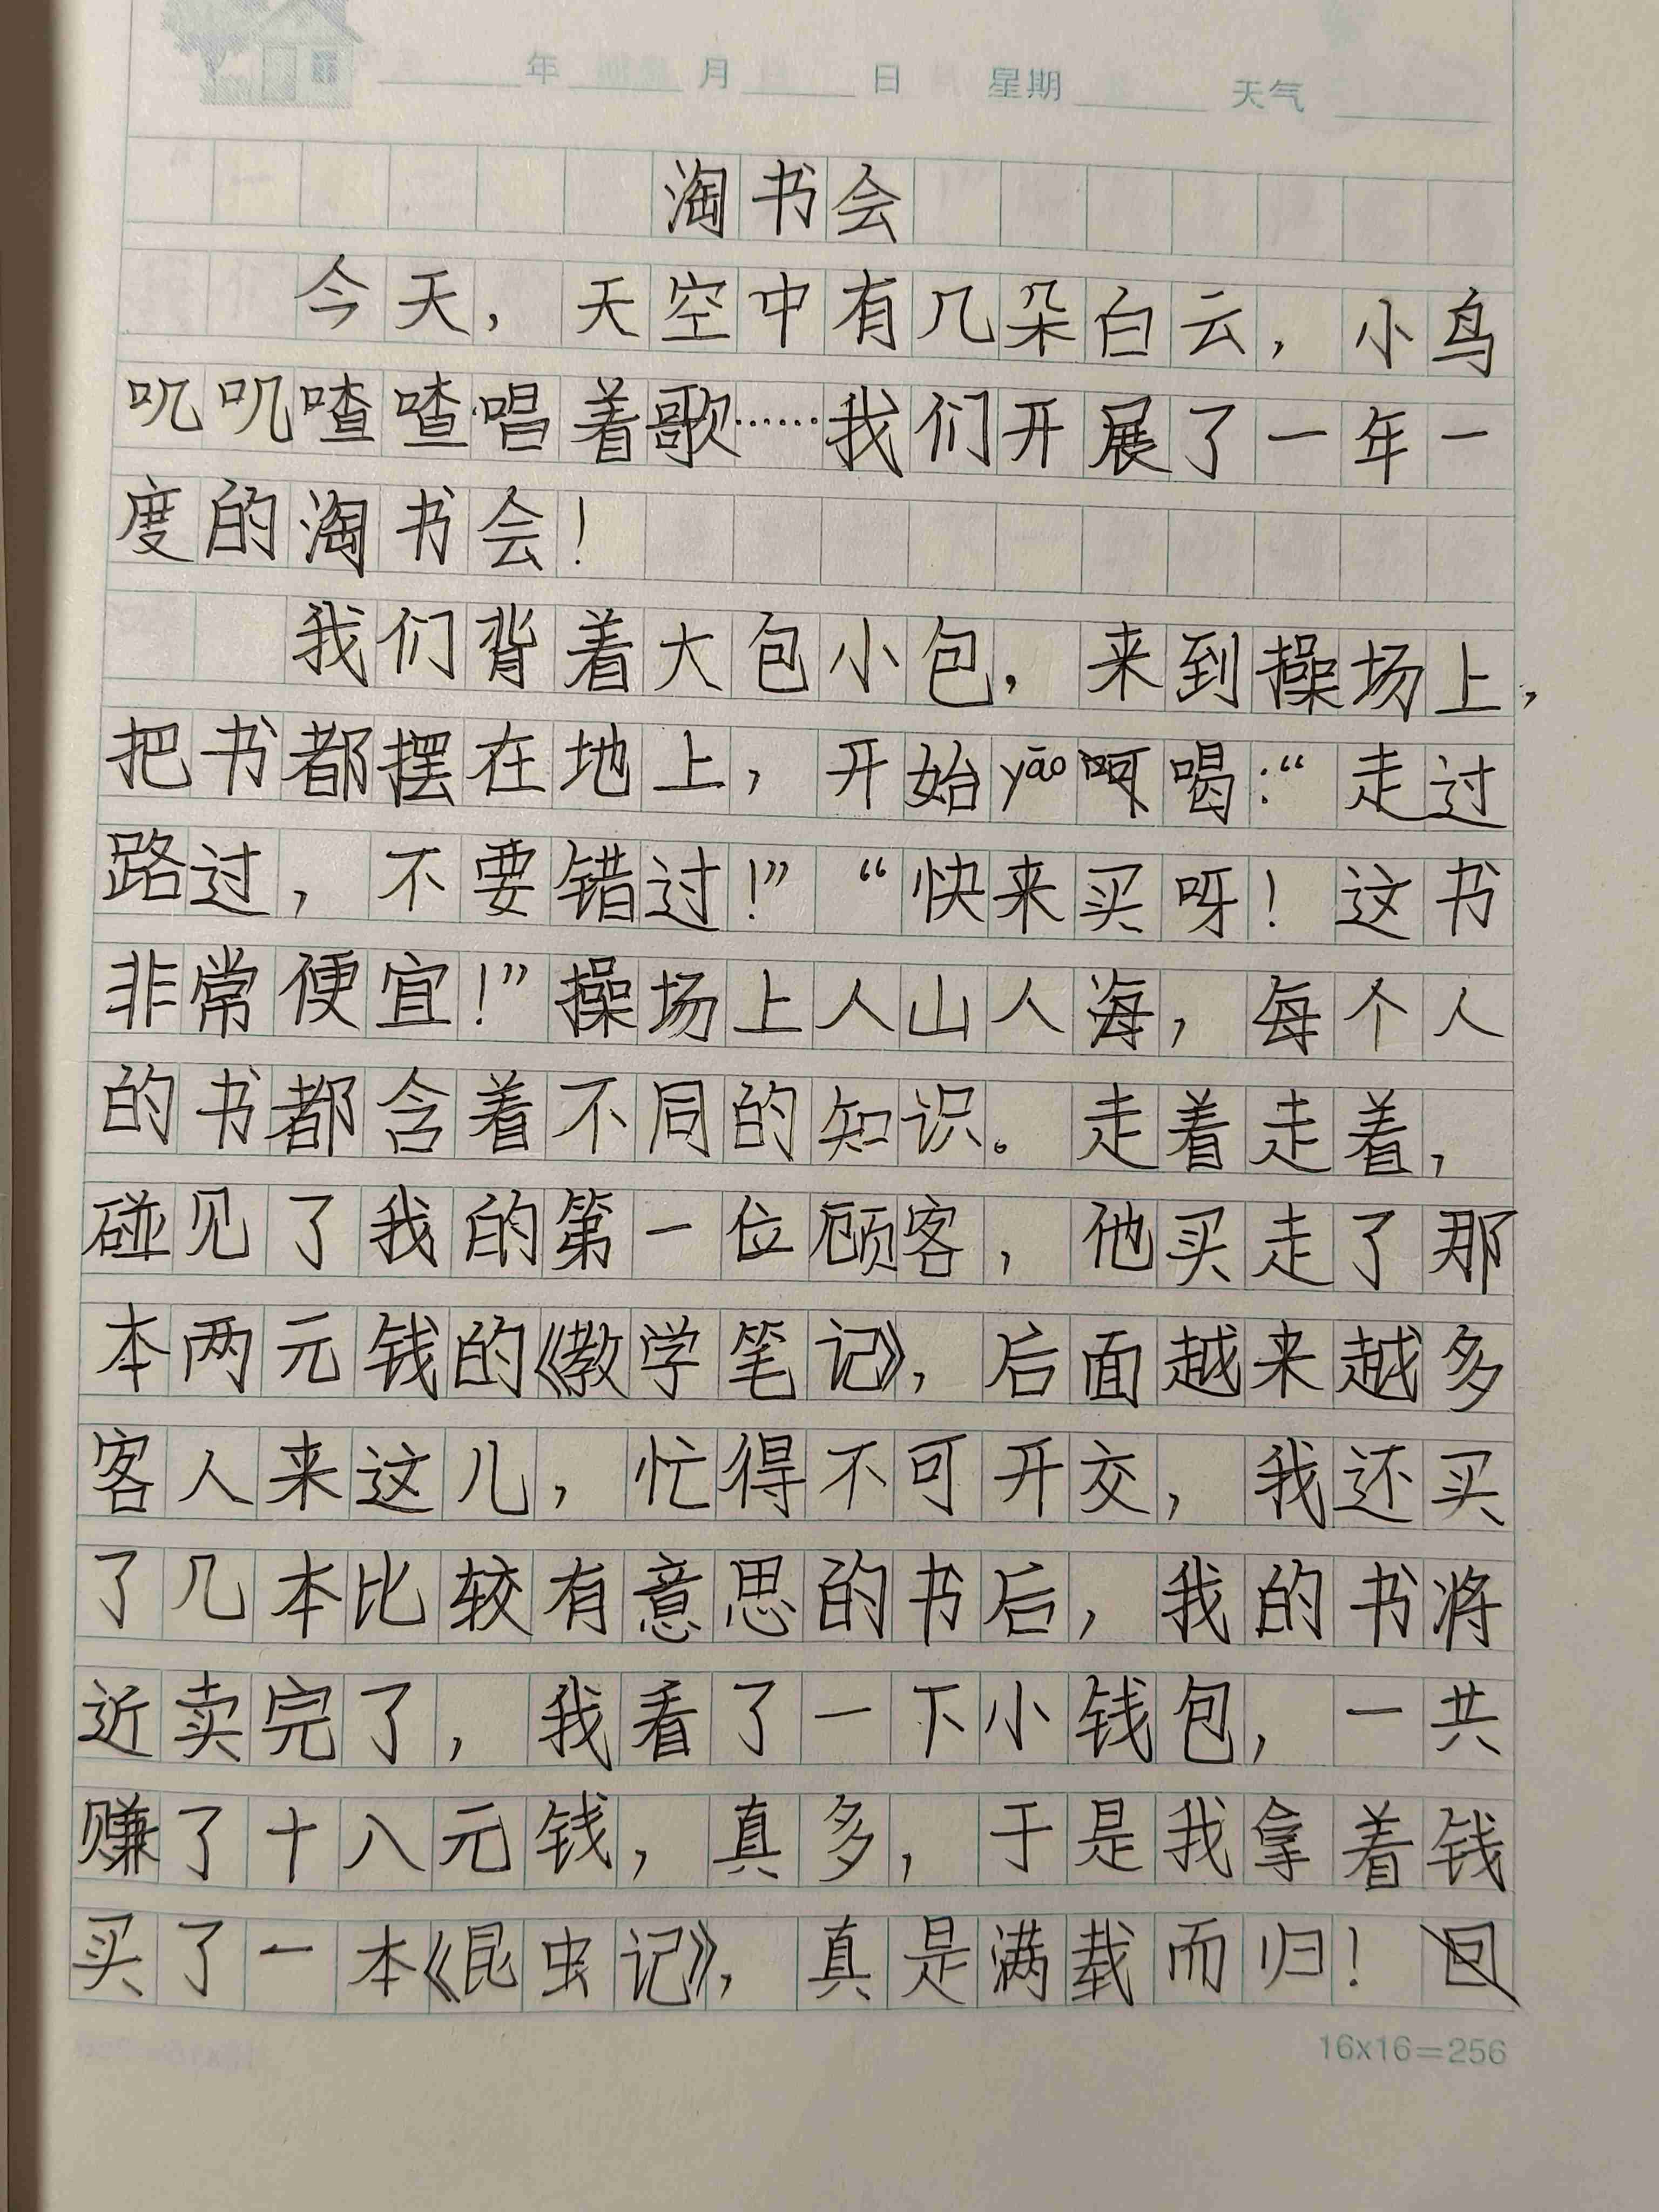 年 月 日 星期 天气
淘书会
今天，天空中有几朵白云，小鸟
叽叽喳喳唱着歌……我们开展了一年一
度的淘书会！
我们背着大包小包，来到操场上，
把书都摆在地上，开始yāo呵喝：“走过
路过，不要错过！”“快来买呀！这书
非常便宜！”操场上人山人海，每个人
的书都含着不同的知识。走着走着，
碰见了我的第一位顾客，他买走了那
本两元钱的《教学笔记》，后面越来越多
客人来这儿，忙得不可开交，我还买
了几本比较有意思的书后，我的书将
近卖完了，我看了一下小钱包，一共
赚了十八元钱，真多，于是我拿着钱
买了一本《昆虫记》，真是满载而归！回
16x16=256